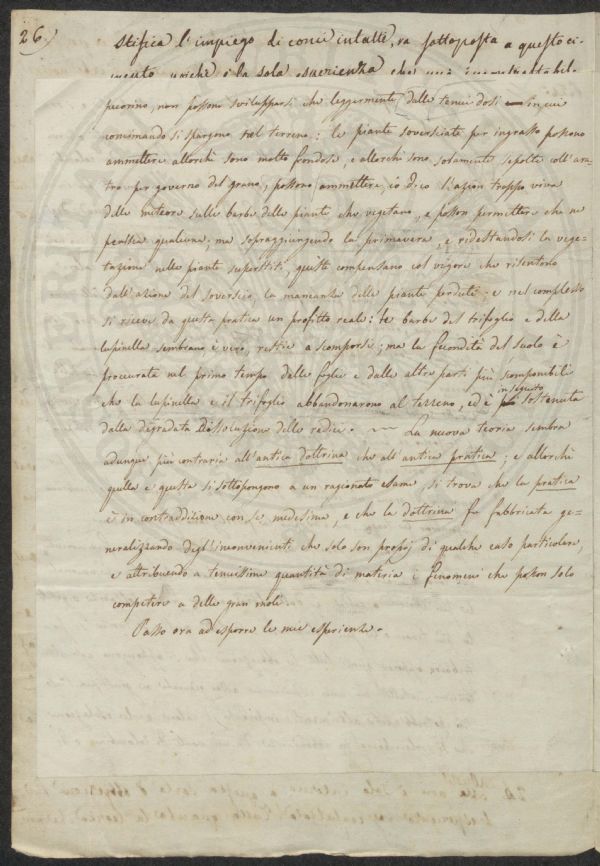 26.)
stifica l'impiego di conci intatti, va sottoposta a questo ci-
mento anche la sola esperienza che
pecorino, non possono svilupparsi che leggermente dalle tenui dosi in cui
comminando si spargono sul terreno: le piante soversciate per ingrasso possono
ammettere allorchè sono molto frondose, e allorchè sono solamente sepolte coll'ara-
tro per governo del grano, possono ammettere, io dico l'azion troppo viva
delle meteore sulle barbe delle piante che vegetano, e posson permettere che ne
perisca qualcuna; ma sopraggiungendo la primavera, e ridestandosi la vege-
tazione nelle piante superstiti, queste compensano col vigore che risentono
dall'azione del soverscio, la mancanza delle piante perdute: e nel complesso
si riceve da questa pratica un profitto reale: le barbe del trifoglio e della
lupinella sembrano è vero, restie a scomporsi; ma la fecondità del suolo è
procurata nel primo tempo dalle foglie e dalle altre parti più scomponibili
che la lupinella e il trifoglio abbandonarono al terreno, ed è in seguito sostenuta
dalla degradata dissoluzione delle radici. — La nuova teoria sembra
adunque più contraria all'antica dottrina che all'antica pratica; e allorchè
quella e questa si sottopongono a un ragionato esame, si trova che la pratica
è in contraddizione con se medesima, e che la dottrina fu fabbricata ge-
neralizzando degl'inconvenienti che solo son proprj di qualche caso particolare,
e attribuendo a tenuissime quantità di materia i fenomeni che posson solo
competere a delle gran moli.
Passo ora ad esporre le mie esperienze.